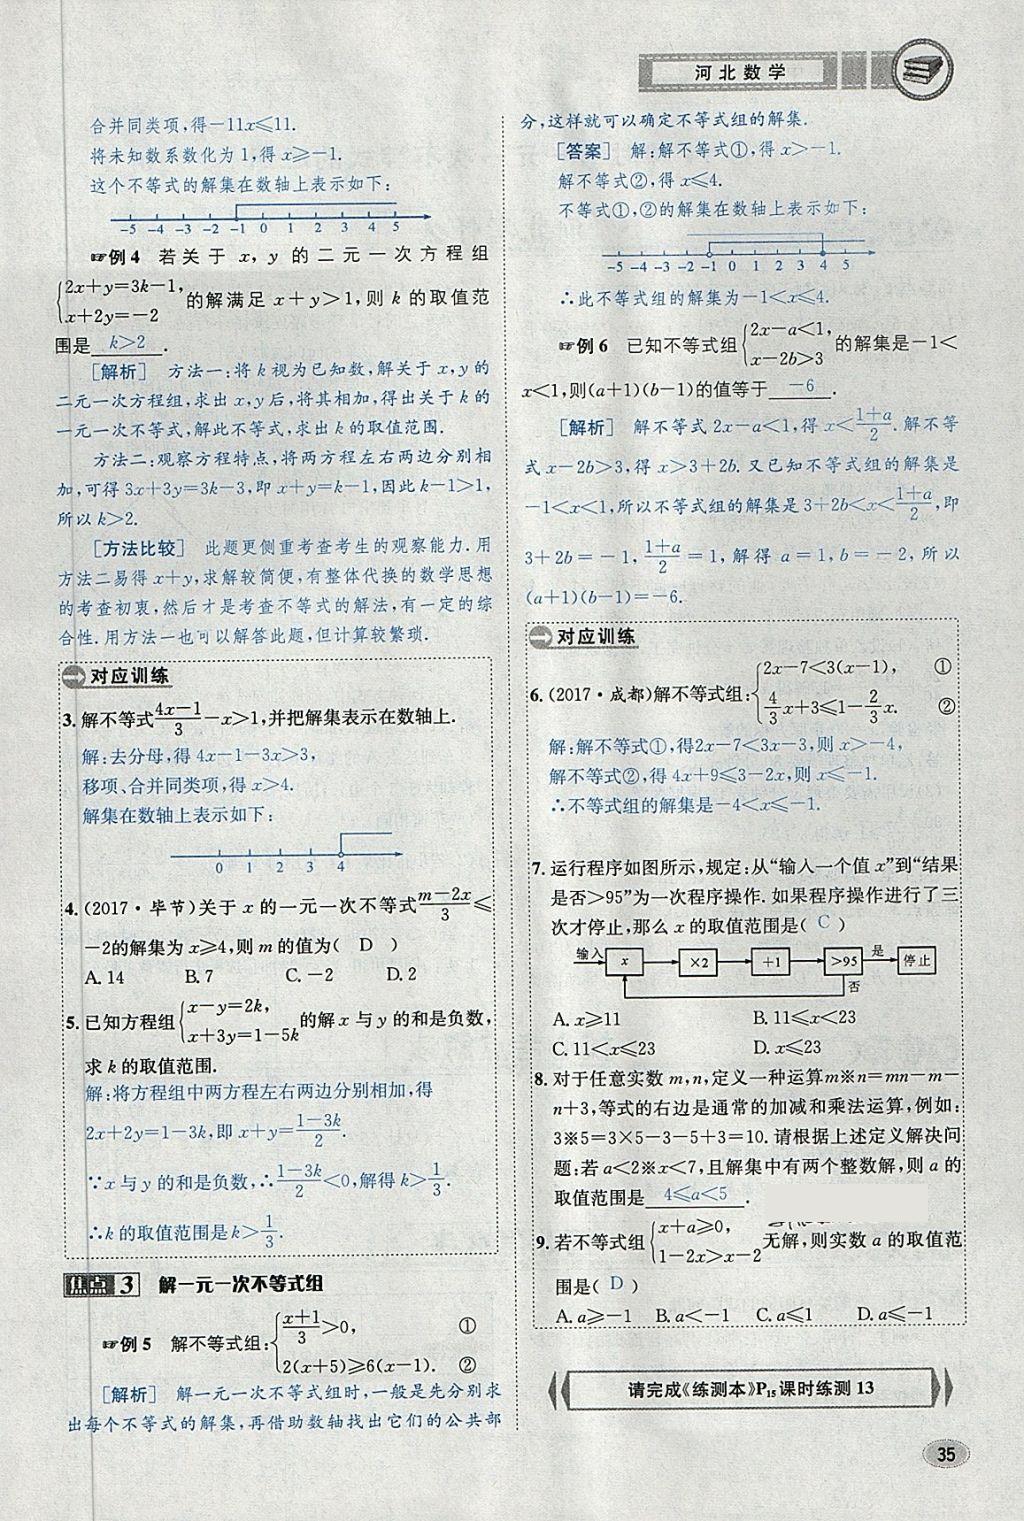 河北数学
合并同类项,得-11x≤11.
将未知数系数化为1,得x≥-1.
这个不等式的解集在数轴上表示如下:
-5 -4 -3 -2 -1 0 1 2 3 4 5
☞例4 若关于x,y的二元一次方程组
{2x+y=3k-1,
x+2y=-2
的解满足x+y>1,则k的取值范
围是 k>2 .
[解析] 方法一:将k视为已知数,解关于x,y的
二元一次方程组,求出x,y后,将其相加,得出关于k的
一元一次不等式,解此不等式,求出k的取值范围.
方法二:观察方程特点,将两方程左右两边分别相
加,可得3x+3y=3k-3,即x+y=k-1,因此k-1>1,
所以k>2.
[方法比较] 此题更侧重考查考生的观察能力.用
方法二易得x+y,求解较简便,有整体代换的数学思想
的考查初衷,然后才是考查不等式的解法,有一定的综
合性.用方法一也可以解答此题,但计算较繁琐.
对应训练
3.解不等式(4x-1)/3-x>1,并把解集表示在数轴上.
解:去分母,得4x-1-3x>3,
移项、合并同类项,得x>4.
解集在数轴上表示如下:
0 1 2 3 4
4.(2017·毕节)关于x的一元一次不等式(m-2x)/3≤
-2的解集为x≥4,则m的值为( D )
A.14 B.7 C.-2 D.2
5.已知方程组{x-y=2k,
x+3y=1-5k
的解x与y的和是负数,
求k的取值范围.
解:将方程组中两方程左右两边分别相加,得
2x+2y=1-3k,即x+y=(1-3k)/2.
∵x与y的和是负数,∴(1-3k)/2<0,解得k>1/3.
∴k的取值范围是k>1/3.
焦点3 解一元一次不等式组
☞例5 解不等式组:{(x+1)/3>0, ①
2(x+5)≥6(x-1). ②
[解析] 解一元一次不等式组时,一般是先分别求
出每个不等式的解集,再借助数轴找出它们的公共部
分,这样就可以确定不等式组的解集.
[答案] 解:解不等式①,得x>-1.
解不等式②,得x≤4.
不等式①,②的解集在数轴上表示如下:
-5 -4 -3 -2 -1 0 1 2 3 4 5
∴此不等式组的解集为-1<x≤4.
☞例6 已知不等式组{2x-a<1,
x-2b>3
的解集是-1<
x<1,则(a+1)(b-1)的值等于 -6 .
[解析] 解不等式2x-a<1,得x<(1+a)/2.解不等
式x-2b>3,得x>3+2b.又已知不等式组的解集是
-1<x<1,所以不等式组的解集是3+2b<x<(1+a)/2,即
3+2b=-1,(1+a)/2=1,解得a=1,b=-2,所以
(a+1)(b-1)=-6.
对应训练
6.(2017·成都)解不等式组:{2x-7<3(x-1), ①
4/3x+3≤1-2/3x. ②
解:解不等式①,得2x-7<3x-3,则x>-4,
解不等式②,得4x+9≤3-2x,则x≤-1.
∴不等式组的解集是-4<x≤-1.
7.运行程序如图所示,规定:从“输入一个值x”到“结果
是否>95”为一次程序操作.如果程序操作进行了三
次才停止,那么x的取值范围是( C )
输入 x ×2 +1 >95 是 停止
否
A.x≥11 B.11≤x<23
C.11<x≤23 D.x≤23
8.对于任意实数m,n,定义一种运算m※n=mn-m-
n+3,等式的右边是通常的加减和乘法运算,例如:
3※5=3×5-3-5+3=10.请根据上述定义解决问
题:若a<2※x<7,且解集中有两个整数解,则a的
取值范围是 4≤a<5 .
9.若不等式组{x+a≥0,
1-2x>x-2
无解,则实数a的取值范
围是( D )
A.a≥-1 B.a<-1 C.a≤1 D.a≤-1
请完成《练测本》P15课时练测13
35